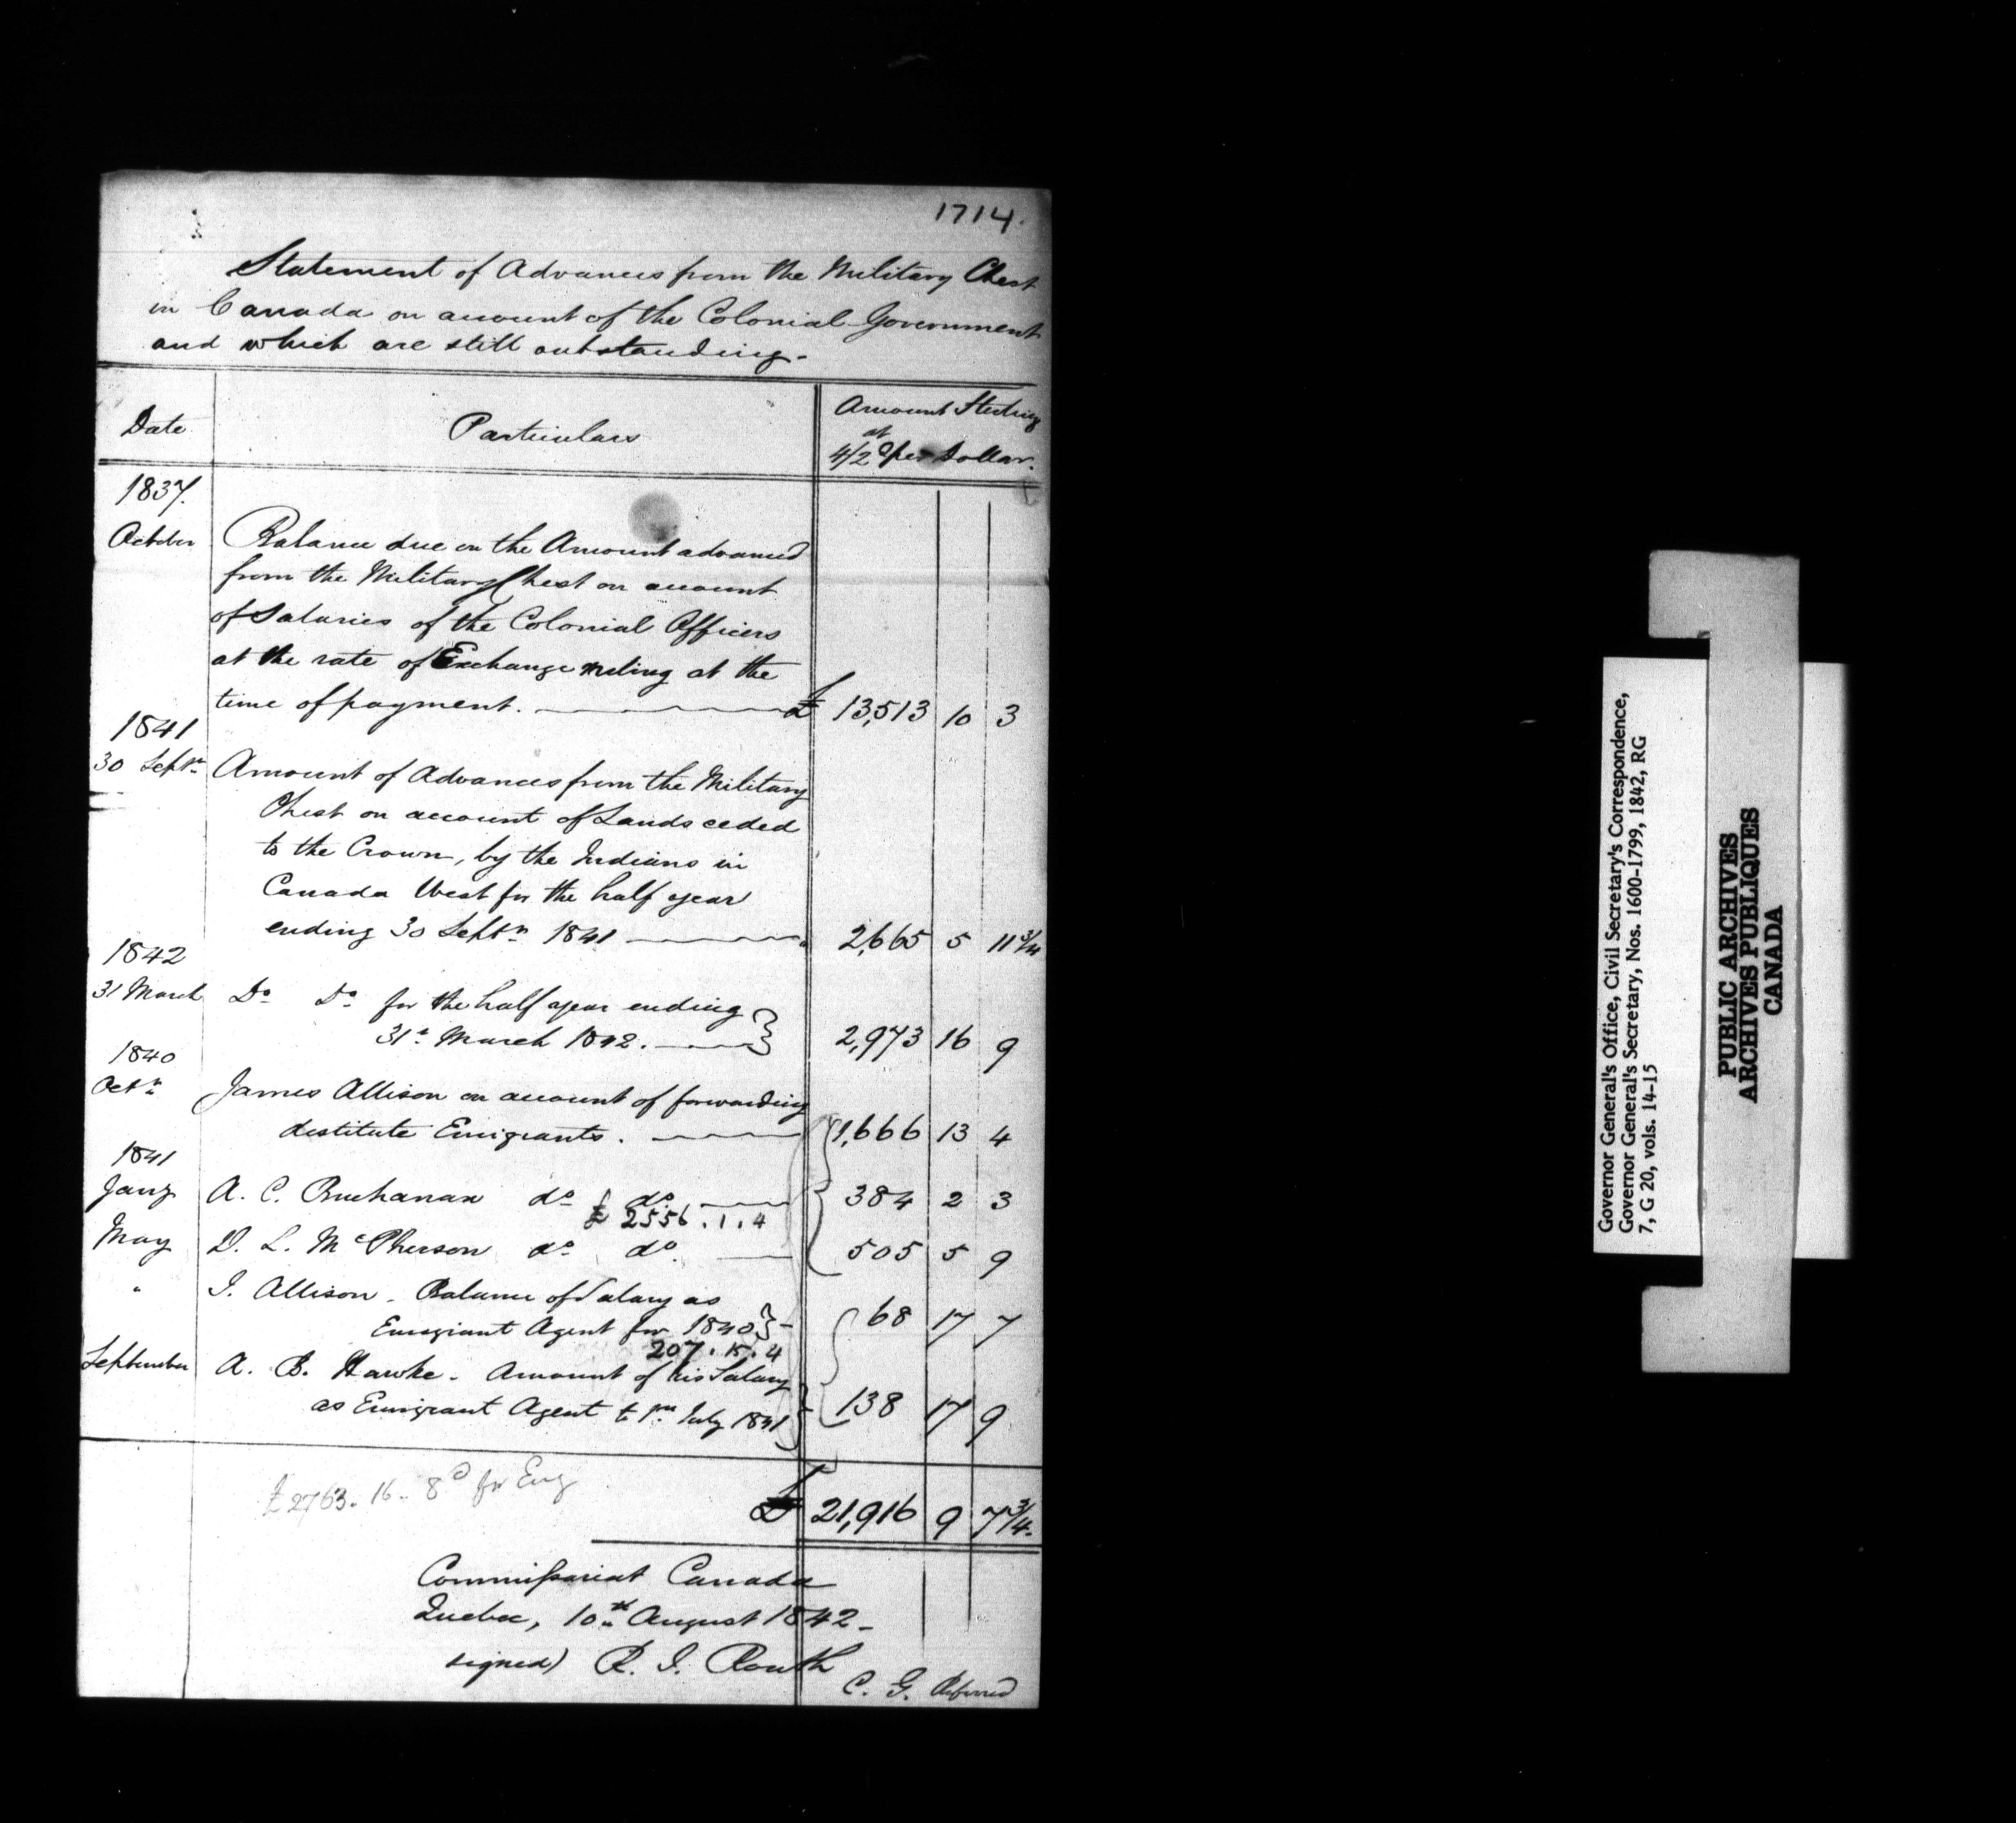 1714.
Statement of Advances from the Military Chest
in Canada on account of the Colonial Government
and which are still outstanding.-
Date
Particulars
Amount Sterling
at
4/2 per Dollar.
1837.
October Balance due on the Amount advanced
from the Military Chest on account
of Salaries of the Colonial Officers
at the rate of Exchange ruling at the
time of payment. £ 13,513 10 3
1841
30 Septr Amount of Advances from the Military
Chest on account of Lands ceded
to the Crown, by the Indians in
Canada West for the half year
ending 30 Septr 1841 " 2,665 5 11 3/4
1842
31 March Do Do for the half year ending
31st March 1842. 2,973 16 9
1840
Octr James Allison on account of forwarding
destitute Emigrants. 1,666 13 4
1841
Jany A. C. Buchanan do do 384 2 3
£ 2556.1.4
May D. L. McPherson do do 505 5 9
" J. Allison. Balance of Salary as
Emigrant Agent for 1840 - 68 17 7
207.15.4
September A. B. Hawke. Amount of his Salary
as Emigrant Agent to 1st July 1841 138 17 9
£2763.16.8d for Emg
£ 21,916 9 7 3/4
Commissariat Canada
Quebec, 10th August 1842-
signed) R. I. Routh
C. G.
Governor General's Office, Civil Secretary's Correspondence,
Governor General's Secretary, Nos. 1600-1799, 1842, RG
7, G 20, vols. 14-15
PUBLIC ARCHIVES
ARCHIVES PUBLIQUES
CANADA